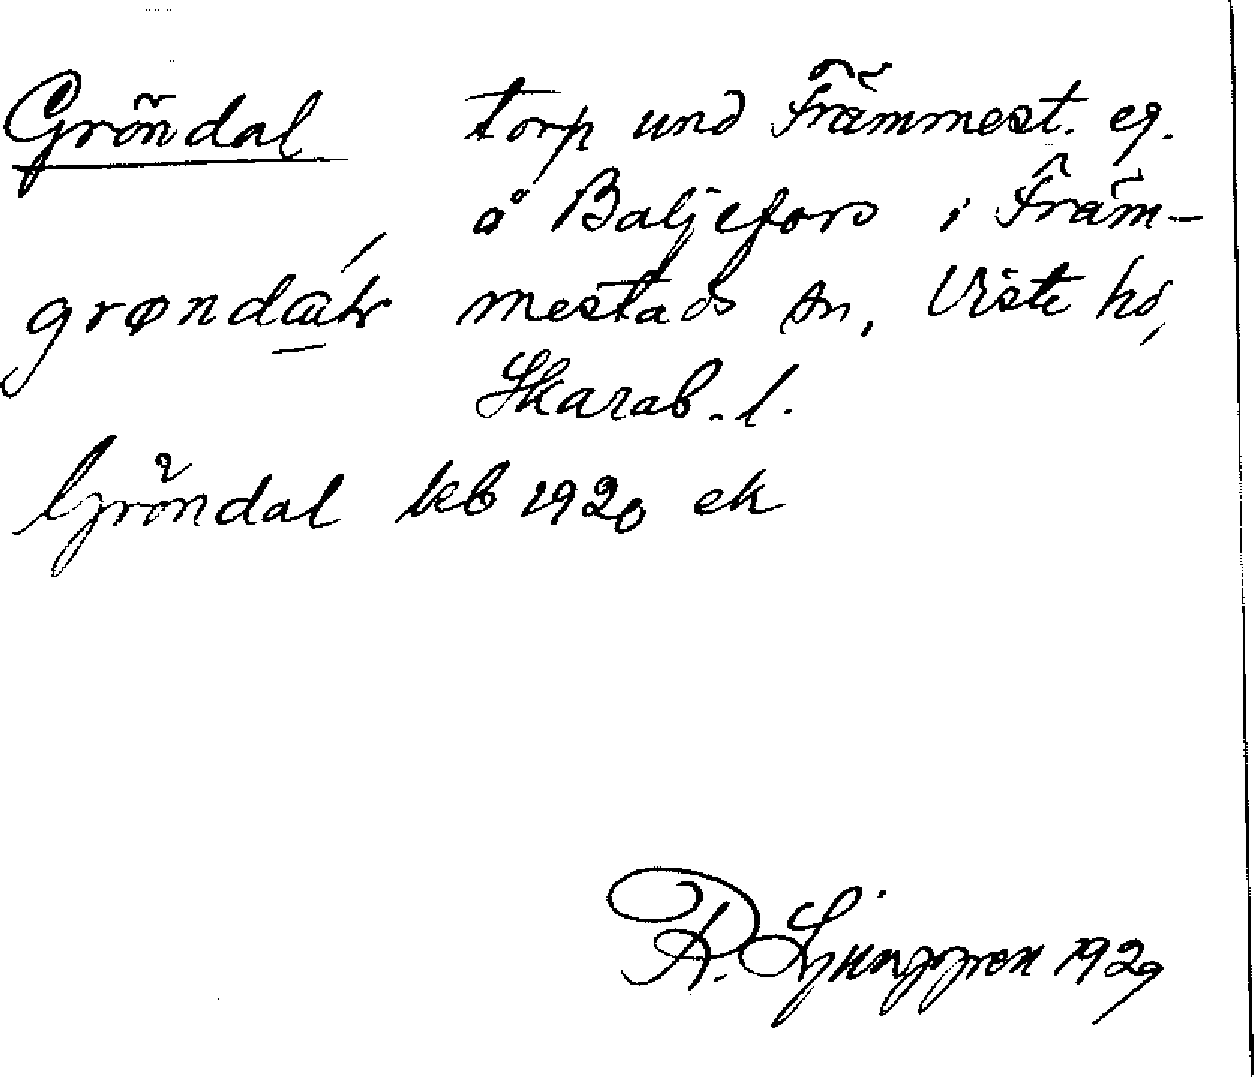 Gröndal torp und Främmest. eg.
å Baljefors i Främ-
mestads sn, Viste hd,
Skarab. l.
Gröndal kb 1920 ek
R. Ljunggren 1929